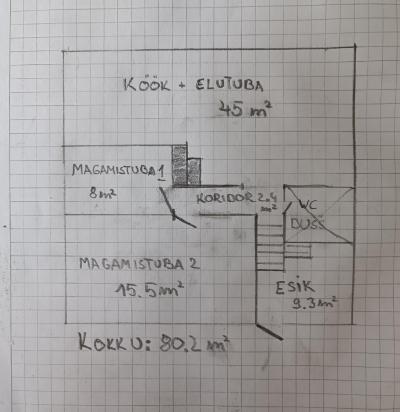 KÖÖK + ELUTUBA
45 m²
MAGAMISTUBA 1
8 m²
KORIDOR 2.4
m²
WC
DUŠŠ
MAGAMISTUBA 2
15.5 m²
ESIK
9.3 m²
KOKKU: 80.2 m²